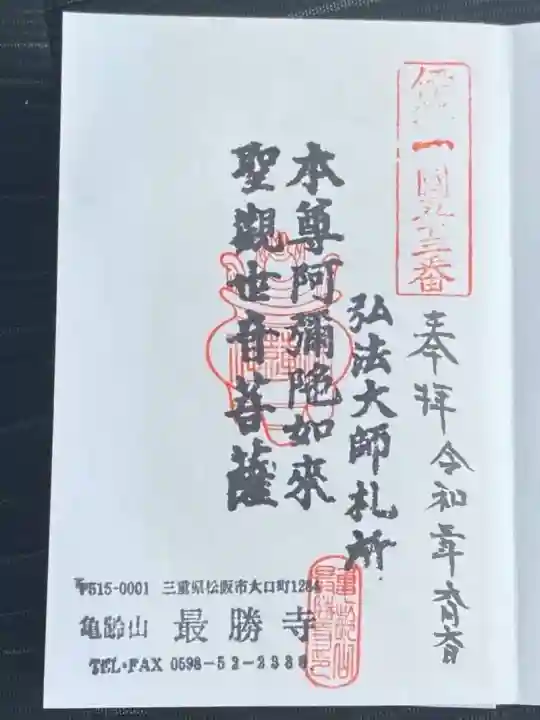 一國五十三番
奉拝 令和
弘法大師札所
本尊阿彌陀如來
聖觀世音菩薩
〒515-0001 三重県松阪市大口町1264
亀齢山 最勝寺
TEL・FAX 0598-52-2338